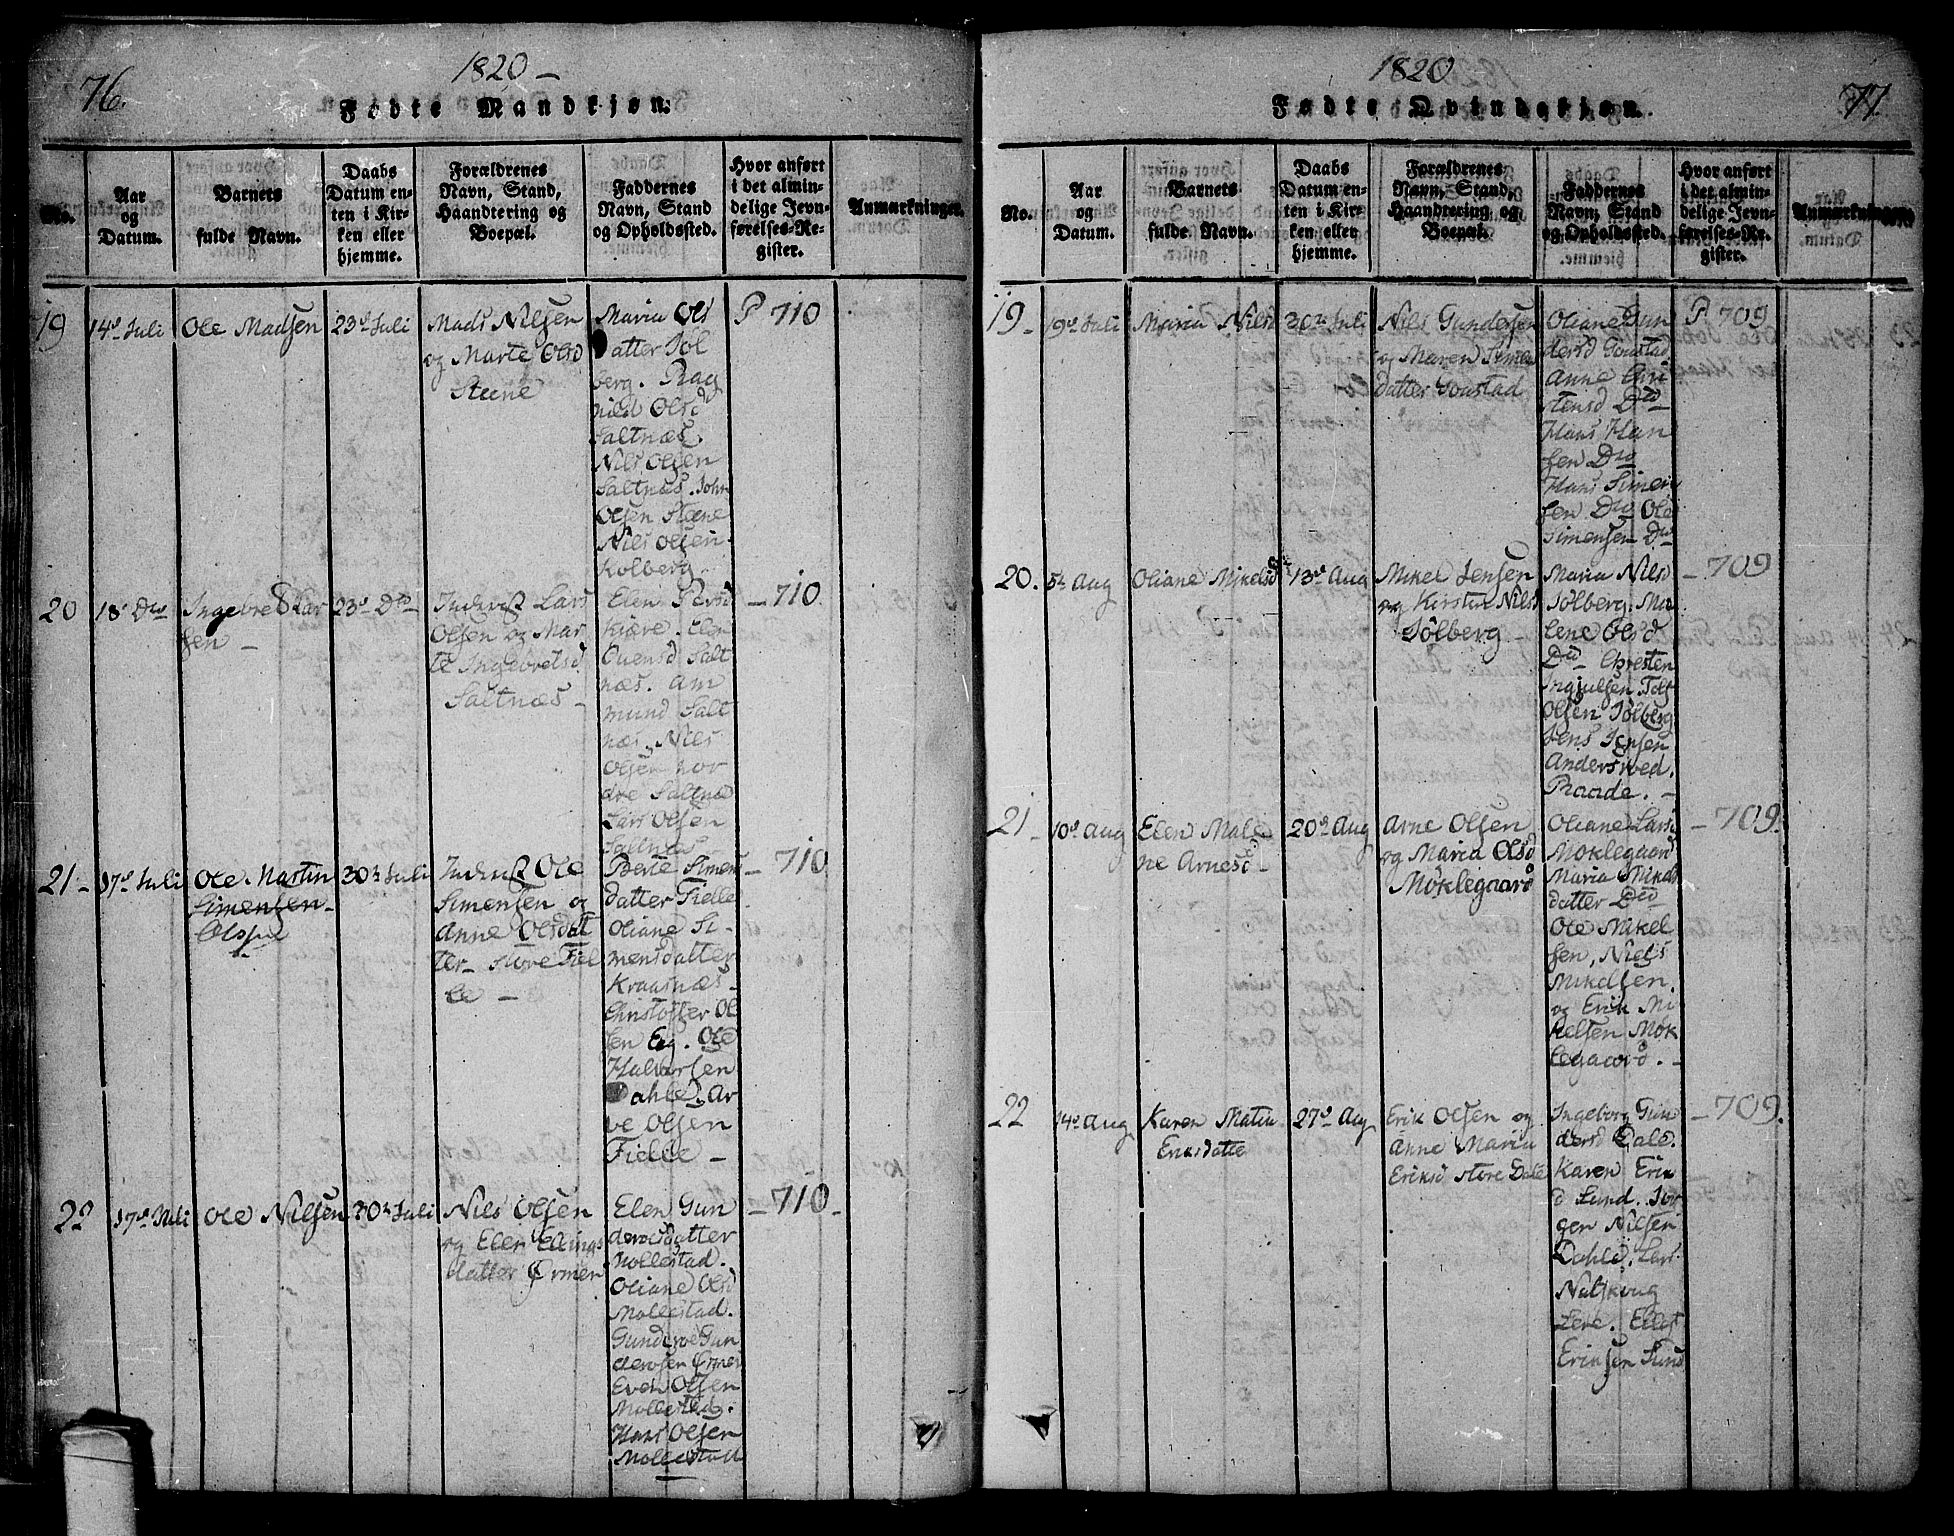 76.
1820 –
Fødte Mandkjøn.
No.
Aar
og
Datum.
Barnets
fulde Navn.
Daabs
Datum en-
ten i Kir-
ken eller
hjemme.
Forældrenes
Navn, Stand,
Haandtering og
Boepæl.
Faddernes
Navn, Stand
og Opholdssted.
Hvor anført
i det almin-
delige Jevn-
førelses-Re-
gister.
Anmærkninger.
19
14d Juli
Ole Madsen
23d Juli
Mads Nilsen
og Marte Olsd
Steene
Maria Ols
datter Sol
berg. Rag
nild Olsd
Saltnæs.
Nils Olsen
Saltnæs. John
Olsen Steene
Nils Olsen
Kolberg.
P 710
20
18d Do
Ingebret Lar
sen –
23d Do
Inderst Lars
Olsen og Mar
te Ingebretsd
Saltnæs –
Elen Persd
Kiære. Elen
Ouensd Salt
næs. Am
mund Salt
næs. Nils
Olsen nor
dre Saltnæ
Lars Olsen
Saltnæs
– 710
21 –
17d Juli
Ole Martin
Simensen
Olssen
30te Juli
Inderst Ole
Simensen og
Anne Olsdat
ter – Store Fiel
le –
Berte Simen
datter Fielle
Oliane Si-
mensdatter
Kraasnæs –
Christoffer Ol
sen Eeg. Ole
Halvorsen
Dahle. Ar
ve Olsen
Fielle –
– 710
22
17d Juli
Ole Nilsen
30te Juli
Nils Olsen
og Elen Ellings
datter Ørmen
Elen Gun
dersdatter
Mollestad.
Oliane Olsd
Mollestad.
Gunder Gun
dersen Ørmen
Even Olsen
Mollestad.
Hans Olsen
Mollestad
– 710 –
1820
77.
Fødte Qvindekjøn.
No.
Aar
og
Datum.
Barnets
fulde Navn.
Daabs
Datum en-
ten i Kir-
ken eller
hjemme.
Forældrenes
Navn, Stand,
Haandtering og
Boepæl.
Faddernes
Navn, Stand
og Opholdssted.
Hvor anført
i det almin-
delige Jevn-
førelses-Re-
gister.
Anmærkninger.
19 –
19d Juli
Maria Nilsd
30te Juli
Nils Gundersen
og Maren Simen
datter Goustad
Oliane Gun
dersd Goustad
Anne Cri
stensd Do –
Hans Han
sen Do
Hans Simen
sen Do Ole
Simensen Do
P 709
20.
5te Aug
Oliane Mikelsd
13d Aug
Mikel Jensen
og Kirsten Nilsd
Sølberg –
Maria Nilsd
Sølberg. Ma
lene Olsd
Do – Christen
Ingiulsen. Tolf
Olsen Sølberg
Jens Jensen
Andersrød.
Raade. –
– 709
21 –
10d Aug
Elen Male
ne Arnesd –
20d Aug
Arne Olsen
og Maria Olsd
Møklegaard
Oliane Larsd
Møklegaard
Maria Mikels
datter Do
Ole Mikel
sen, Niels
Mikelsen.
og Erik Mi
kelsen Møk
legaard. –
– 709.
22
14d Aug
Karen Matia
Ericsdatte
27d Aug
Erik Olsen og
Anne Maria
Eriksd Store Dale
Ingeborg Gun
dersd Dale.
Karen Erik
d Lund. Jør
gen Nilsen
Dahle. Lars
Erik&#115;en Lund
– 709.